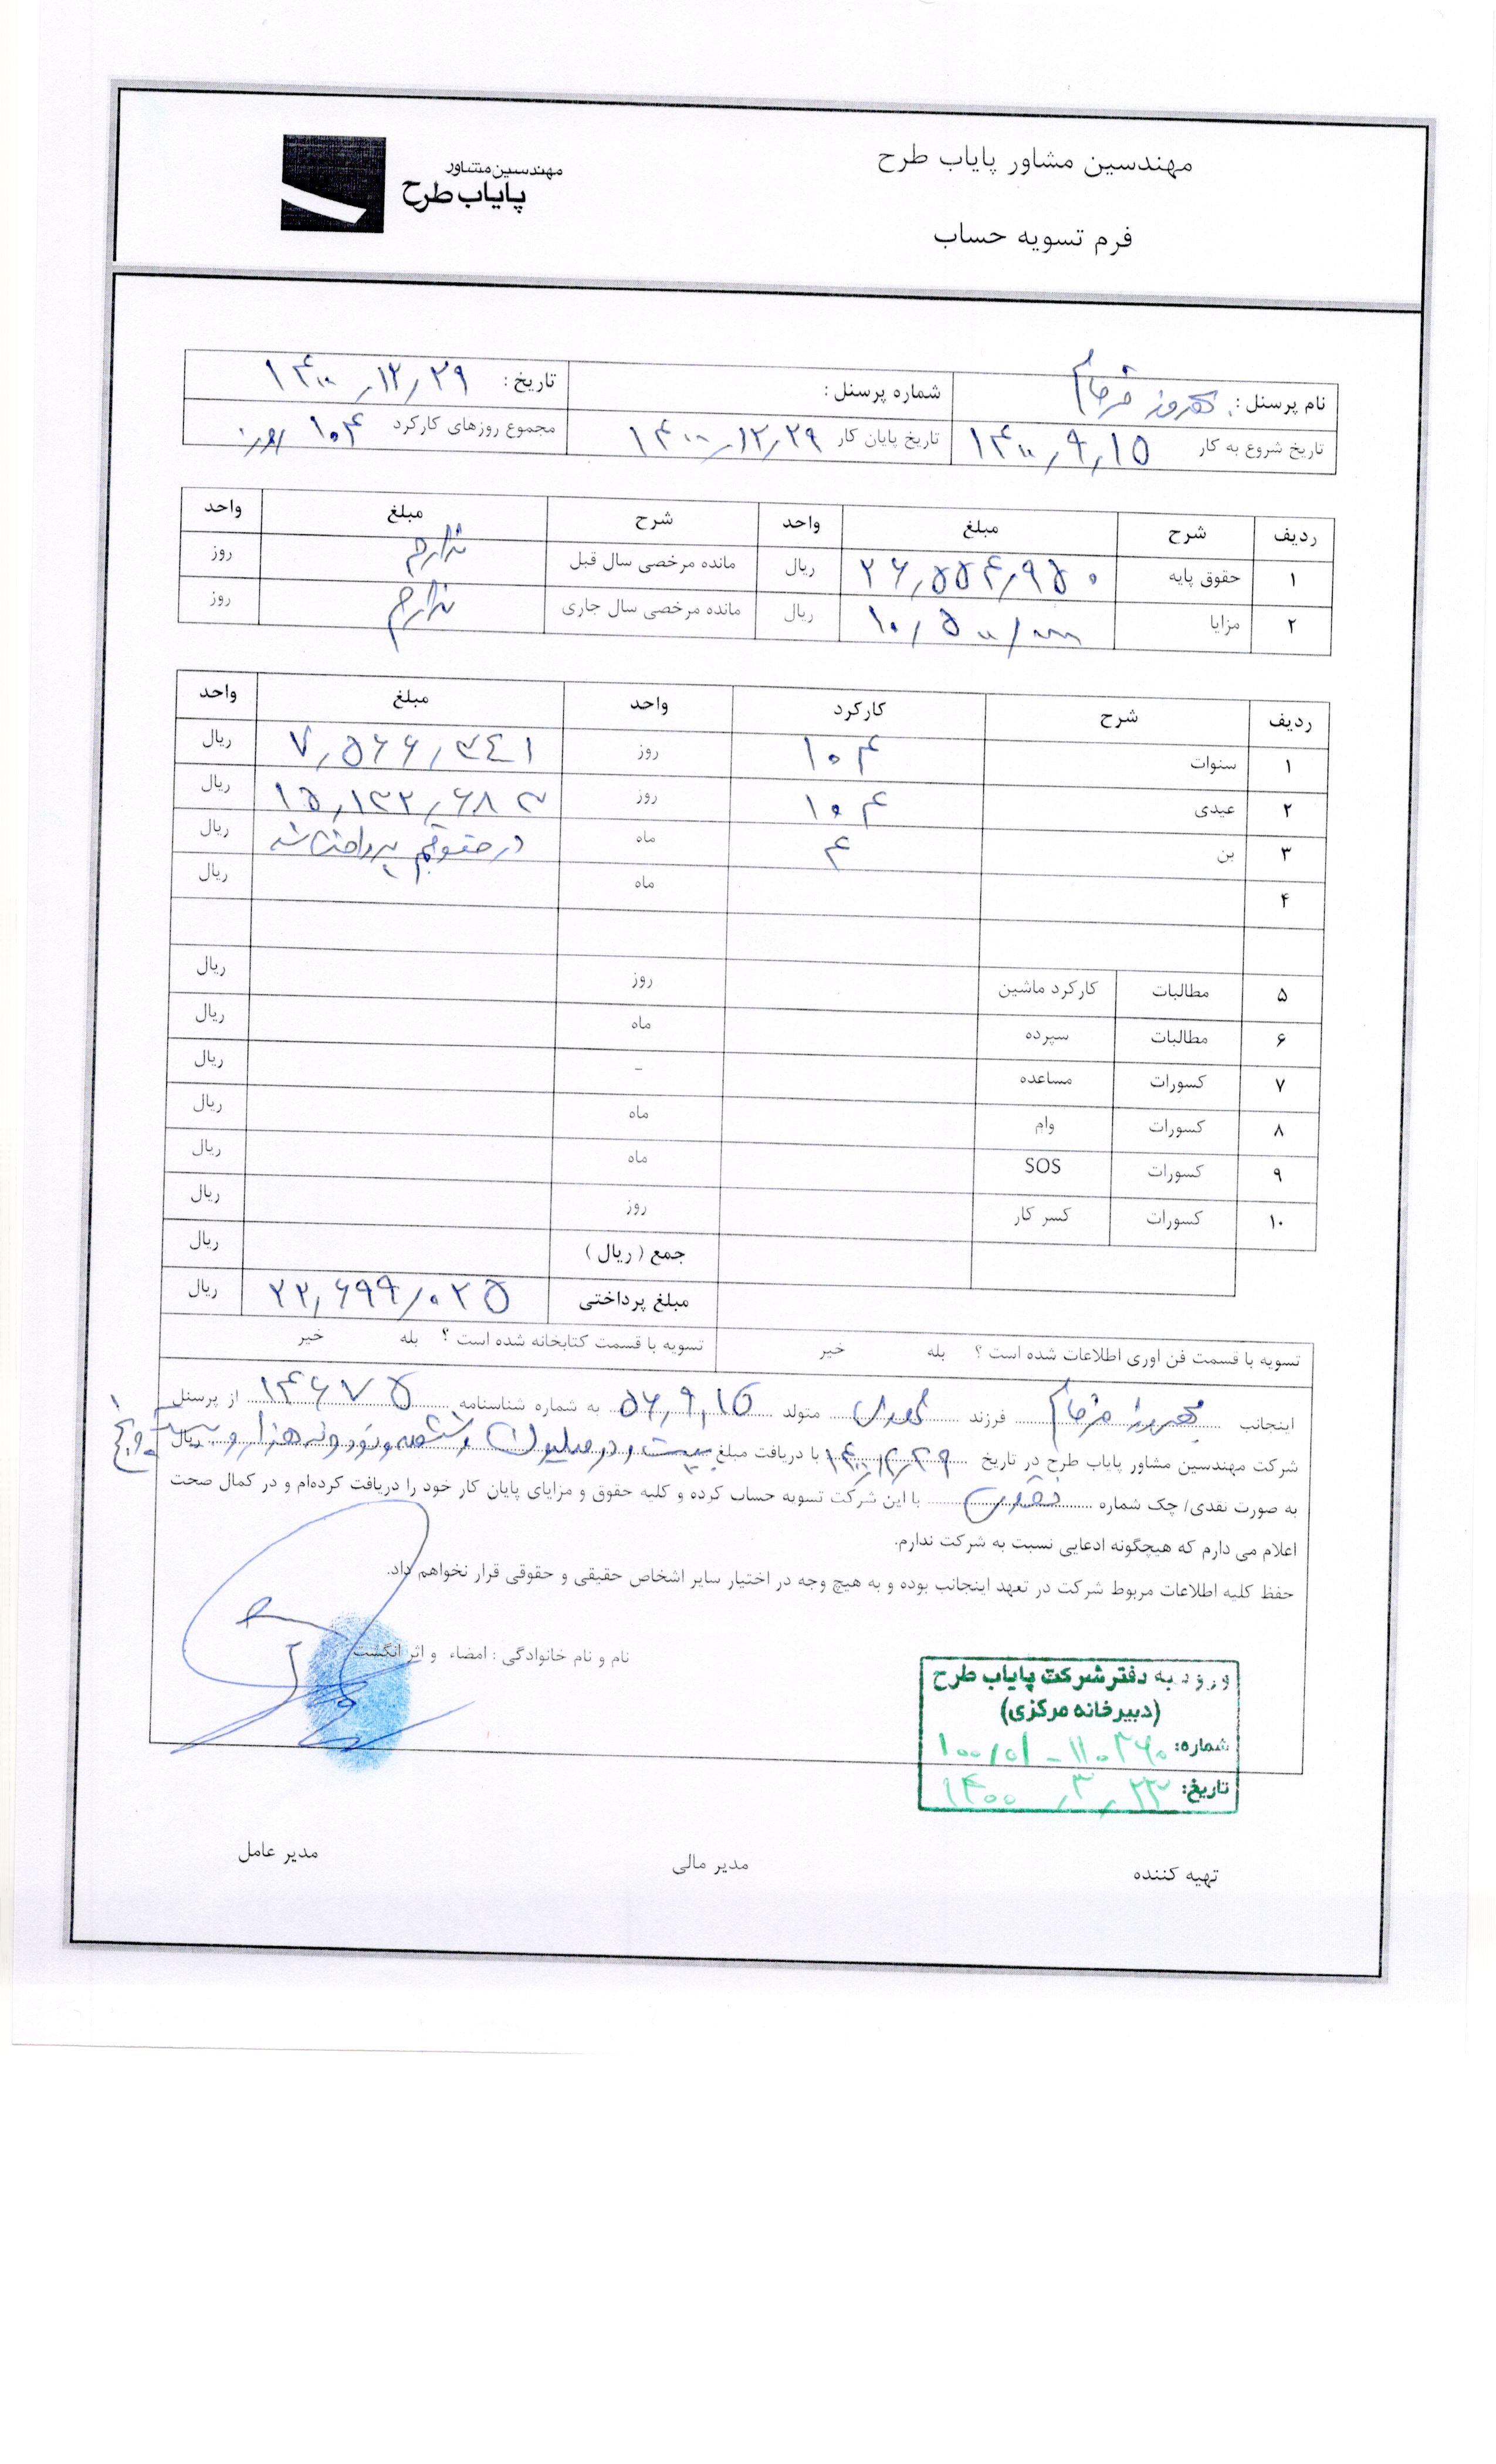 مهندسین مشاور پایاب طرح
مهندسین مشاور
پایاب طرح
فرم تسویه حساب
نام پرسنل : بهروز فرجام
شماره پرسنل :
تاریخ : ۱۴۰۰/۱۲/۲۹
تاریخ شروع به کار ۱۴۰۰/۹/۱۵
تاریخ پایان کار ۱۴۰۰/۱۲/۲۹
مجموع روزهای کارکرد ۱۰۴ روز
ردیف شرح مبلغ واحد شرح مبلغ واحد
۱ حقوق پایه ۲۶,۵۵۴,۹۵۰ ریال مانده مرخصی سال قبل ندارم روز
۲ مزایا ۱۰,۵۰۰,۰۰۰ ریال مانده مرخصی سال جاری ندارم روز
ردیف شرح کارکرد واحد مبلغ واحد
۱ سنوات ۱۰۴ روز ۷,۵۶۶,۳۴۱ ریال
۲ عیدی ۱۰۴ روز ۱۵,۱۳۲,۶۸۳ ریال
۳ بن ۴ ماه در حقوقم پرداخت شد ریال
۴ ماه ریال
۵ مطالبات کارکرد ماشین روز ریال
۶ مطالبات سپرده ماه ریال
۷ کسورات مساعده - ریال
۸ کسورات وام ماه ریال
۹ کسورات SOS ماه ریال
۱۰ کسورات کسر کار روز ریال
جمع ( ریال ) ریال
مبلغ پرداختی ۲۲,۶۹۹,۰۲۵ ریال
تسویه با قسمت فن اوری اطلاعات شده است ؟ بله خیر تسویه با قسمت کتابخانه شده است ؟ بله خیر
اینجانب بهروز فرجام فرزند متولد ۵۶,۹,۱۵ به شماره شناسنامه ۱۴۶۷۵ از پرسنل
شرکت مهندسین مشاور پایاب طرح در تاریخ ۱۴۰۰/۱۲/۲۹ با دریافت مبلغ بیست و دو میلیون و ششصد و نود و نه هزار و بیست و پنج ریال
به صورت نقدی/ چک شماره نقدی با این شرکت تسویه حساب کرده و کلیه حقوق و مزایای پایان کار خود را دریافت کرده‌ام و در کمال صحت
اعلام می دارم که هیچگونه ادعایی نسبت به شرکت ندارم.
حفظ کلیه اطلاعات مربوط شرکت در تعهد اینجانب بوده و به هیچ وجه در اختیار سایر اشخاص حقیقی و حقوقی قرار نخواهم داد.
نام و نام خانوادگی : امضاء و اثر انگشت
ورود به دفتر شرکت پایاب طرح
(دبیرخانه مرکزی)
شماره: ۱۰۰/۰۱-۱۱۰۳۶۰
تاریخ: ۱۴۰۰/۳/۲۳
تهیه کننده مدیر مالی مدیر عامل